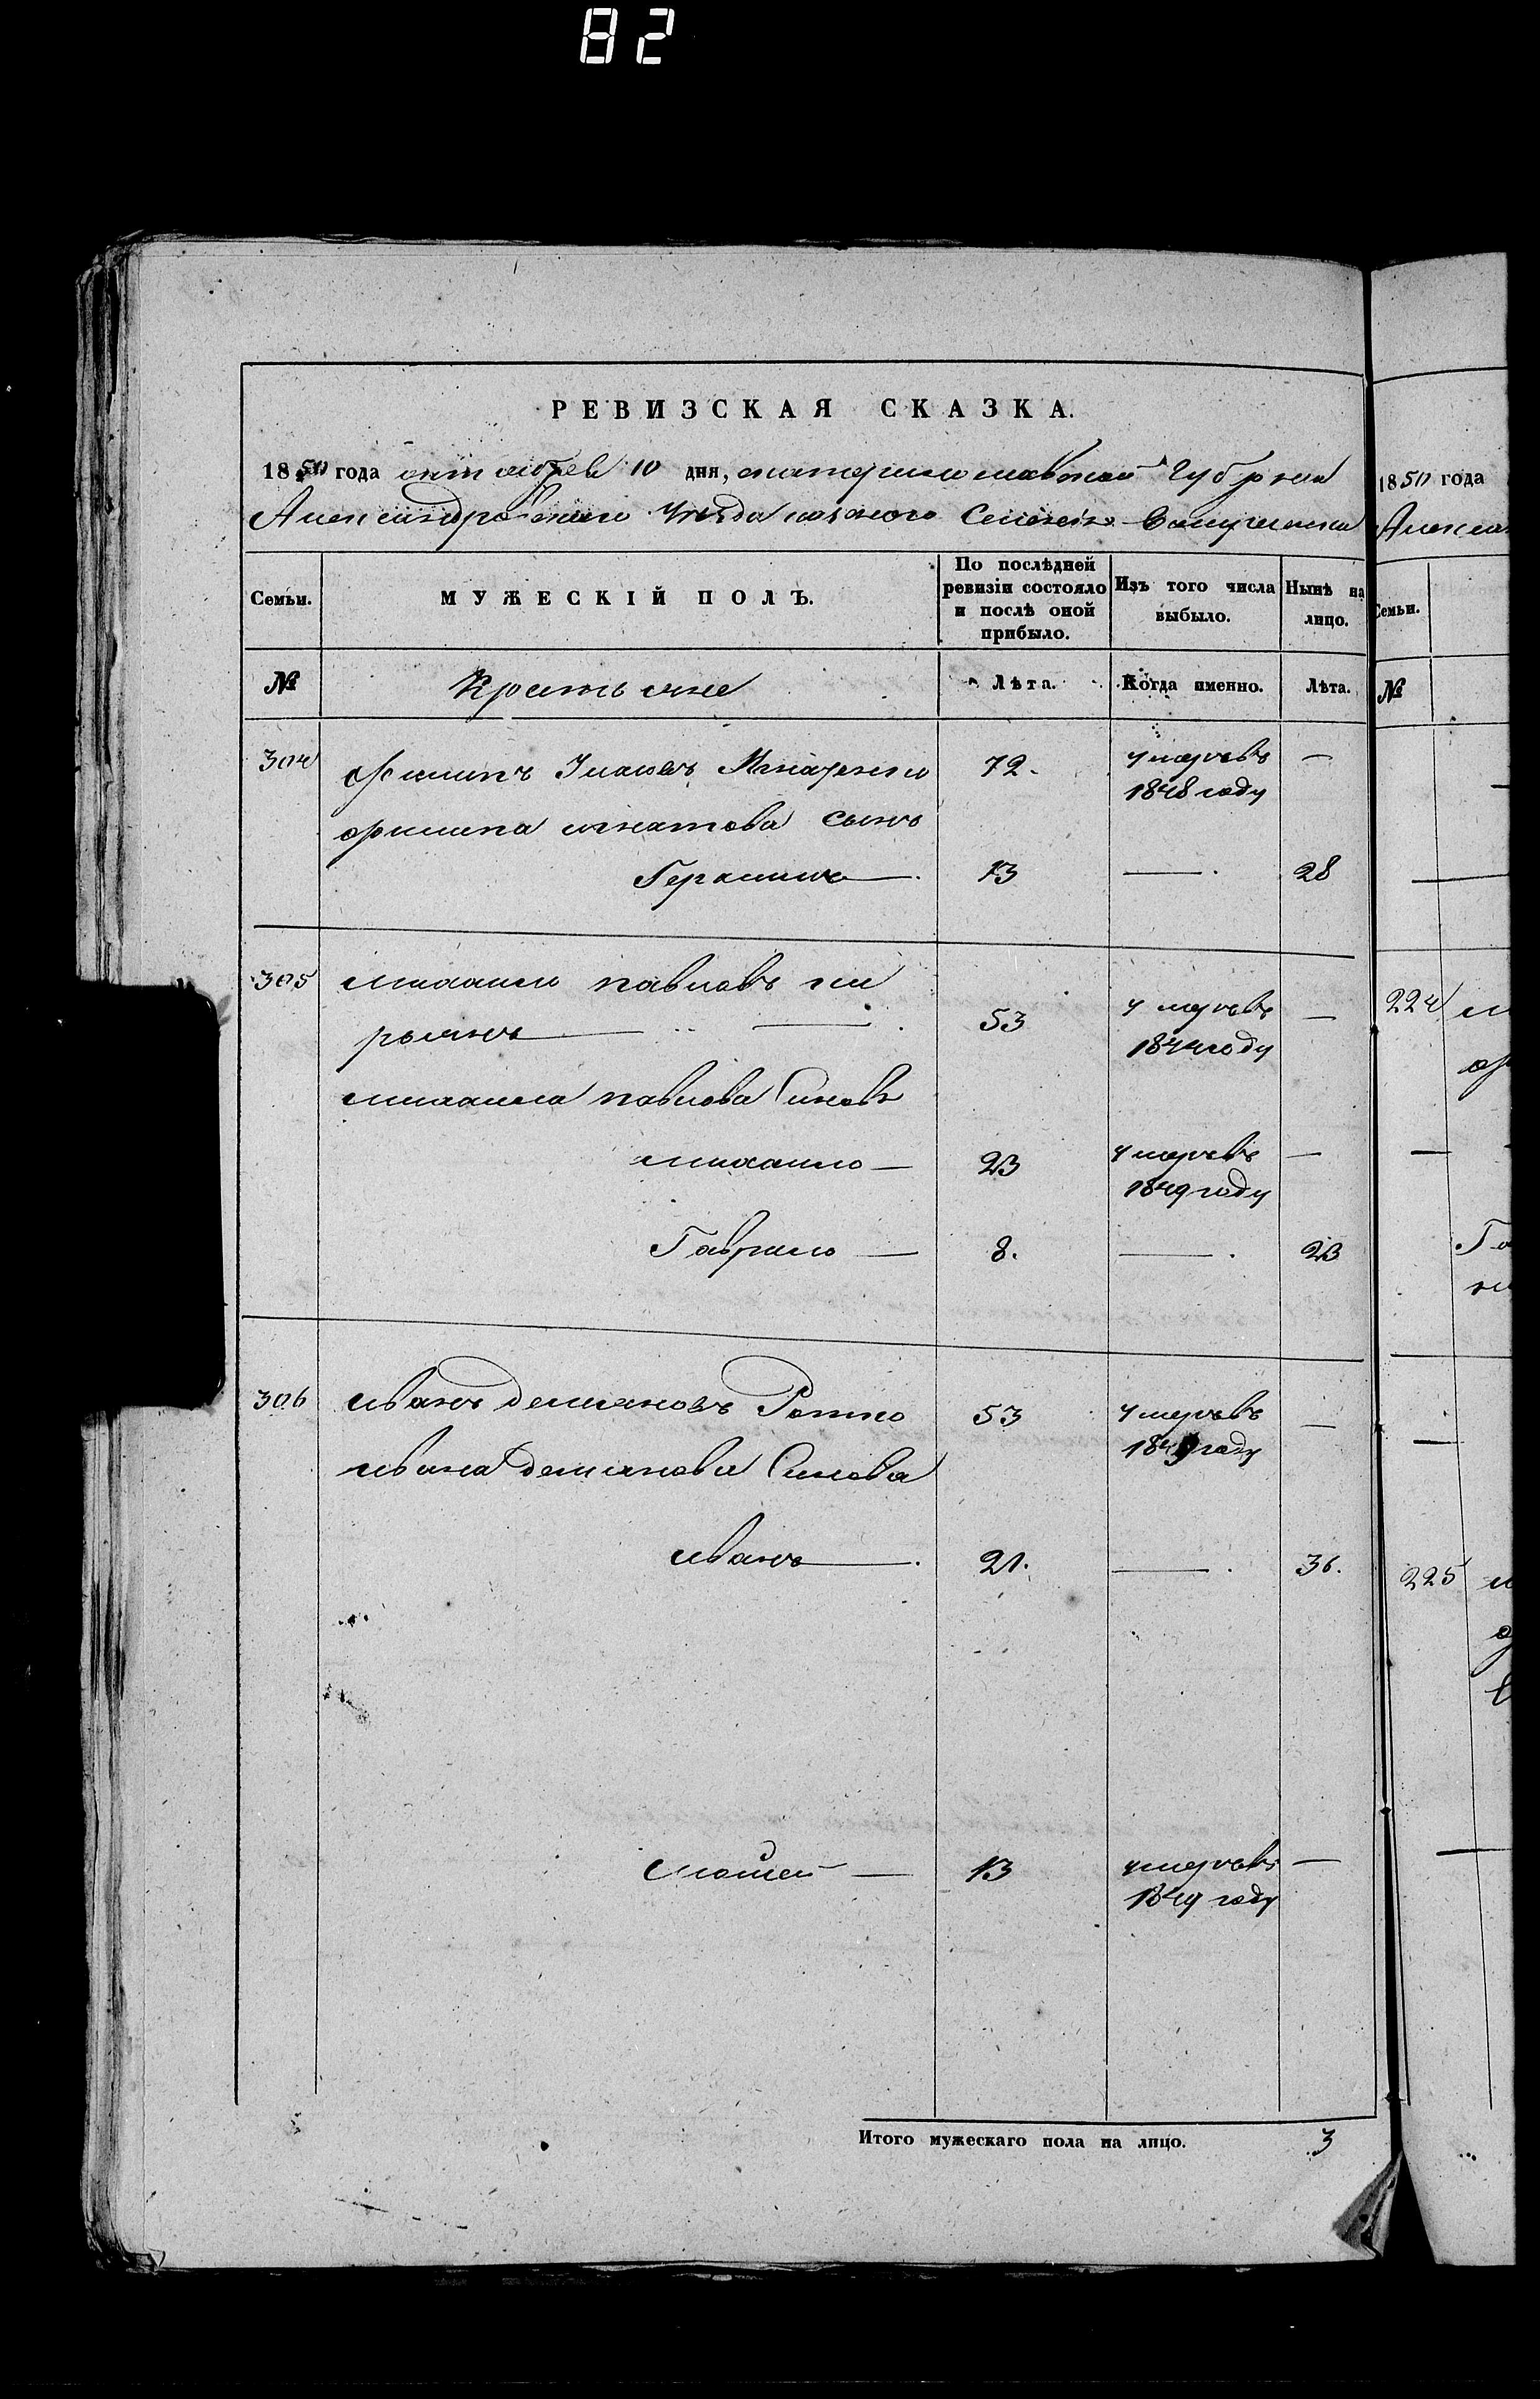 82
РЕВИЗСКАЯ СКАЗКА.
1850 года октября 10 дня, екатеринославской Губернии
Александровского Уезда казеного Селенія
Семьи.
МУЖЕСКІЙ ПОЛЪ.
По послѣдней ревизіи состояло и послѣ оной прибыло.
Изъ того числа выбыло.
Нынѣ на лицо.
№
Крестьяне
Лѣта.
Когда именно.
Лѣта.
304 филипъ 72. умеръ въ —
1848 году
филипа игнатова сынъ
Герасимъ — 13 — 28
305 михаилъ павловъ
53 умеръ въ —
1844 году
михаила павлова Синовъ
михаило — 23 умеръ въ —
1849 году
Гаврило — 8. — 23
306 иванъ демяновъ 53 умеръ въ —
году
ивана демянова Синова
иванъ — 21. — 36.
мойсей — 13 умеръ въ —
1849 году
Итого мужескаго пола на лицо. 3
1850 года
Алекса
Семьи.
№
224
225